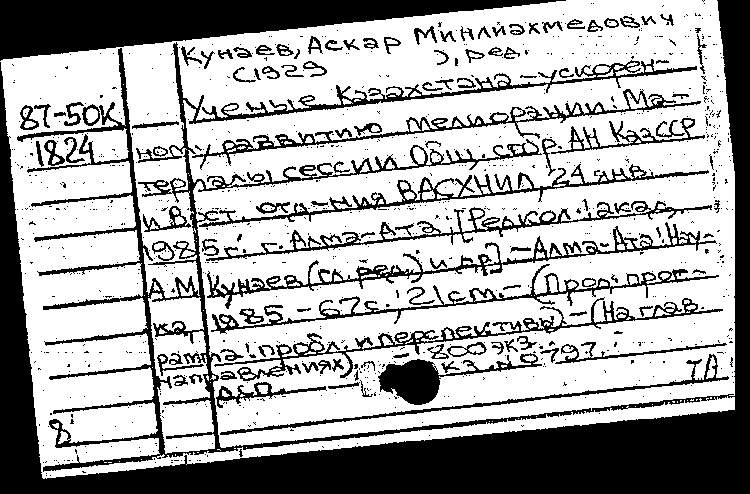 Кунаев, Аскар Минлиахмедович
(1929 ), ред.
87-50К
1824
Ученые Казахстана – ускорен-
ному развитию мелиорации: Ма-
териалы сессии Общ. собр. АН КазССР
и Вост. отд-ния ВАСХНИЛ, 24 янв.
1985 г. г. Алма-Ата; [Редкол.: акад.
А.М. Кунаев (гл. ред.) и др]. – Алма-Ата: Нау-
ка, 1985. – 67 с.; 21 см. – (Прод. прог-
рамма: пробл. и перспективы) – (На глав.
направлениях) – 800 экз.
КЗ. № 0797.
ДСП.
ТА
8